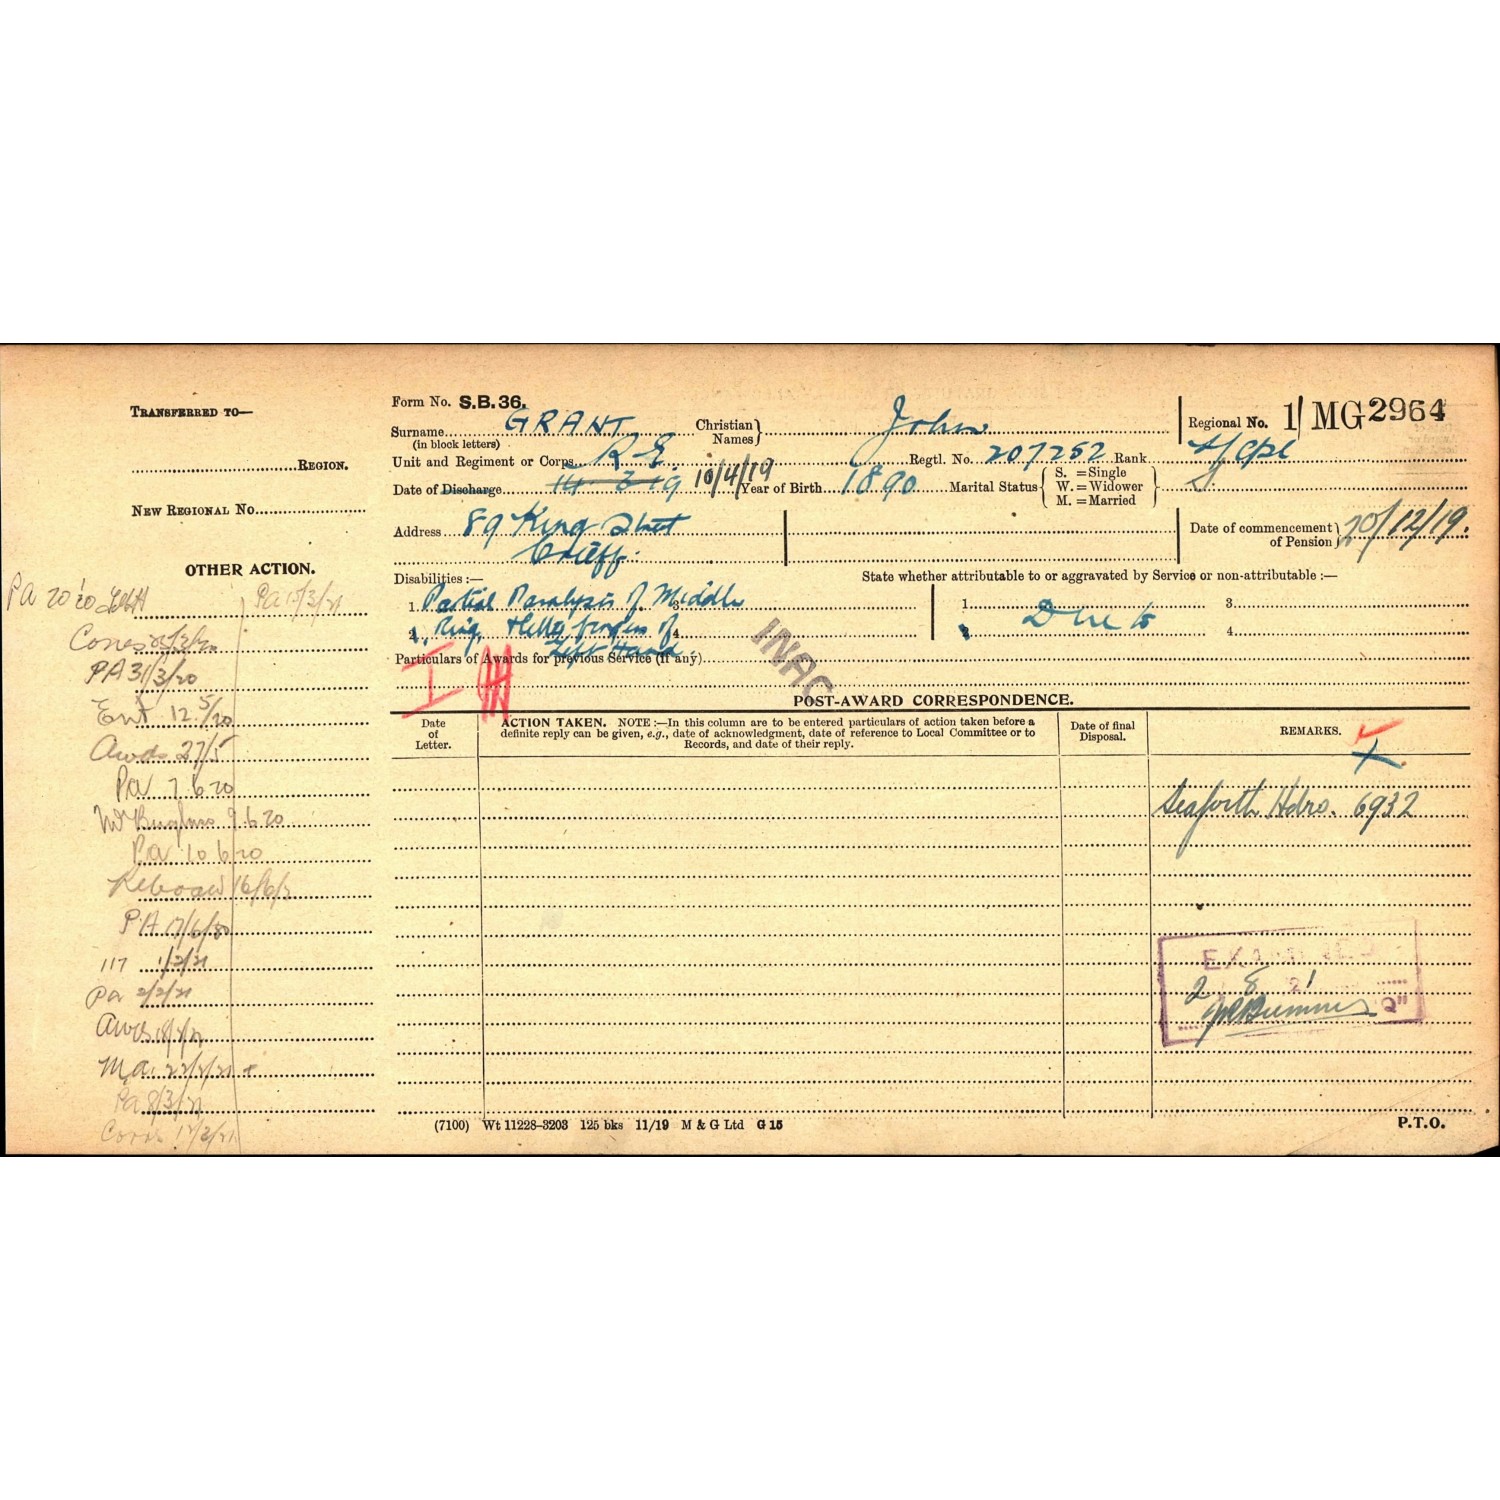 TRANSFERRED TO—
REGION.
NEW REGIONAL No.
OTHER ACTION.
PA 20 '20
PA 15/3/21
PA 31/3/20
Ent 12 5/20
Awds 27/5
PA 7 6 20
9.6.20
PA 10 6 20
Reboard 16/6/2
P.A 17/6/20
117 1/2/21
Pa 2/2/21
Awds
M.a. 22/2/21 +
Pa 8/3/21
12/3/21
Form No. S.B. 36.
Surname GRANT
(in block letters)
Christian Names } John
Regional No. 1/MG2964
Unit and Regiment or Corps R.E. Regtl. No. 207252 Rank A/Cpl
Date of Discharge 14 3 19 10/4/19 Year of Birth 1890 Marital Status { S. =Single W. =Widower M. =Married } S.
Address 89 King Street
Crieff.
Date of commencement of Pension } 20/12/19.
Disabilities :—
State whether attributable to or aggravated by Service or non-attributable :—
1. Partial Paralysis of Middle 3.
2. Ring, & little fingers of 4.
Left Hand.
1. 3.
Due to
2. 4.
Particulars of Awards for previous Service (if any)
I
INAC
POST-AWARD CORRESPONDENCE.
Date of Letter.
ACTION TAKEN. NOTE :—In this column are to be entered particulars of action taken before a
definite reply can be given, e.g., date of acknowledgment, date of reference to Local Committee or to
Records, and date of their reply.
Date of final Disposal.
REMARKS.
Seaforth Hdrs. 6932
EXAMINED
2 8 21
(7100) Wt 11228–3203 125 bks 11/19 M & G Ltd G 15
P.T.O.